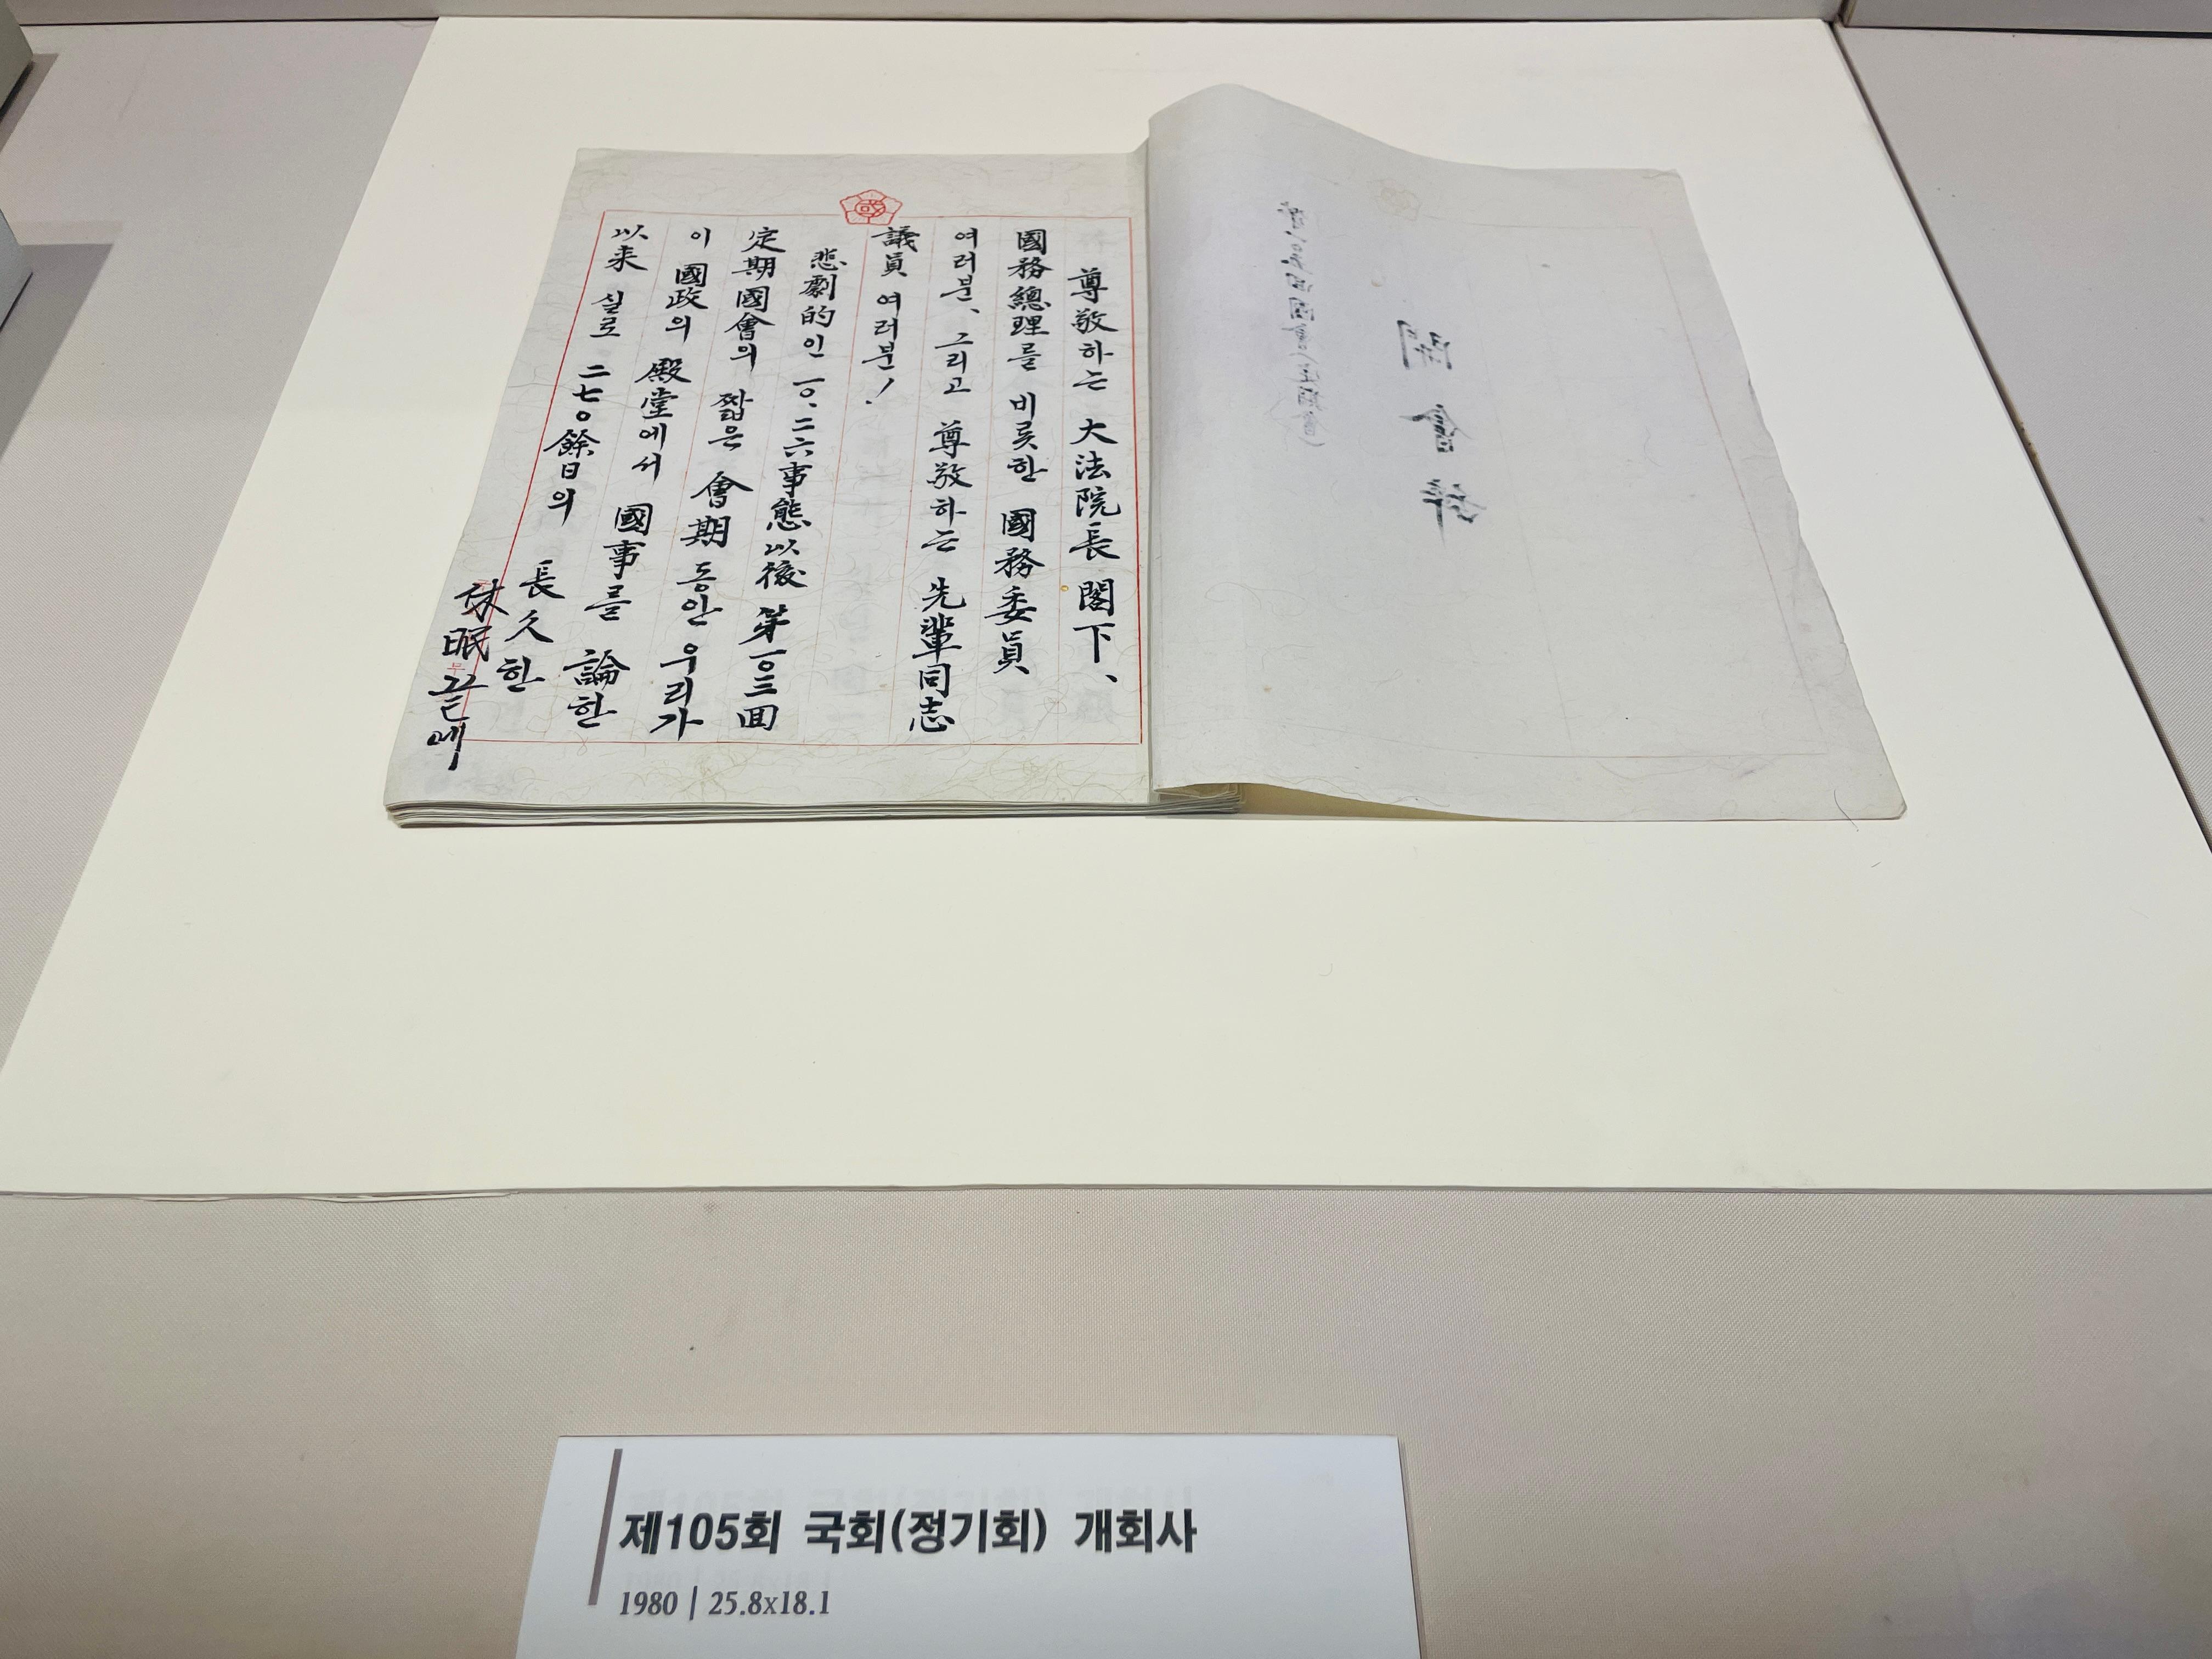 開會辭
尊敬하는 大法院長 閣下、
國務總理를 비롯한 國務委員
여러분、 그리고 尊敬하는 先輩同志
議員 여러분!
悲劇的인 一〇、二六事態以後 第一〇三回
定期國會의 짧은 會期동안 우리가
이 國政의 殿堂에서 國事를 論한
以来 실로 二七〇餘日의 長久한
休眠끝에
제105회 국회(정기회) 개회사
1980 | 25.8x18.1